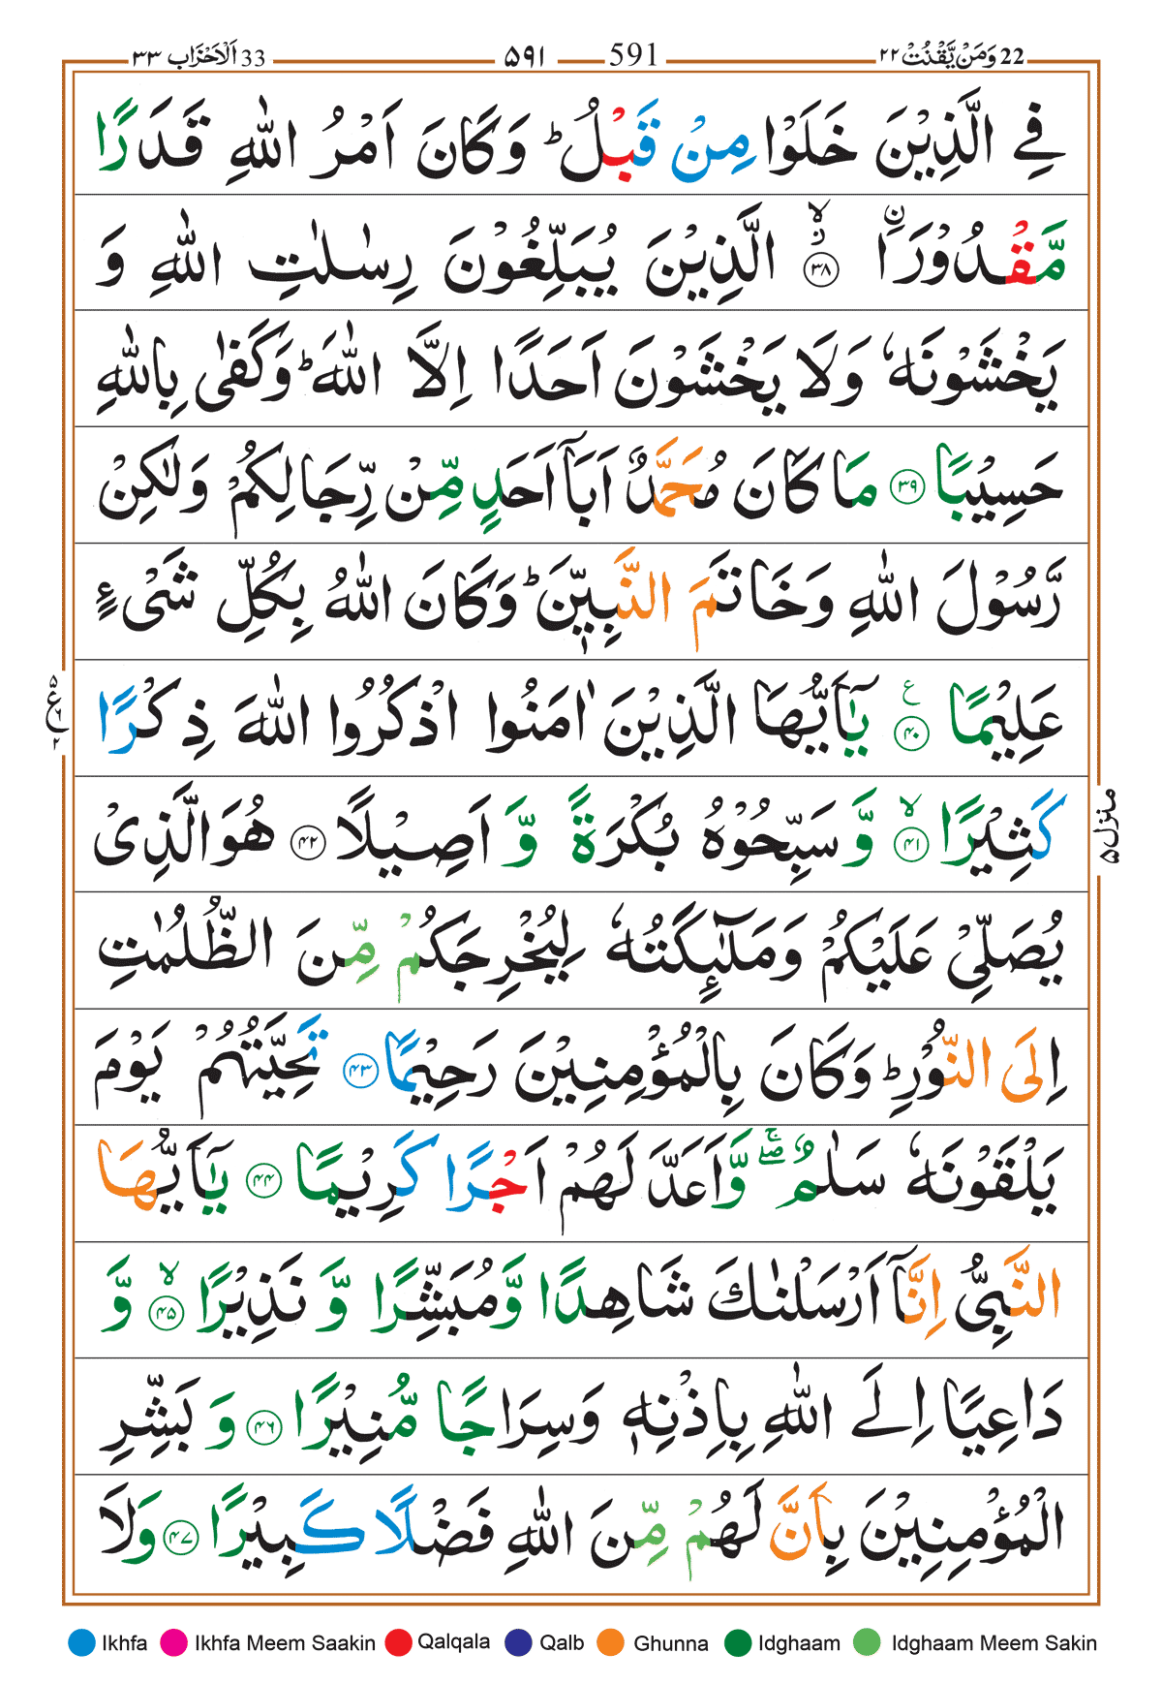 22 وَمَنْ يَّقْنُتْ ٢٢ 591 ۵۹۱ 33 اَلْاَحْزَاب ٣٣
فِے الَّذِيْنَ خَلَوْا مِنْ قَبْلُ ؕ وَكَانَ اَمْرُ اللّٰهِ قَدَرًا
مَّقْدُوْرَا ۙ۟ ﴿۳۸﴾ الَّذِيْنَ يُبَلِّغُوْنَ رِسٰلٰتِ اللّٰهِ وَ
يَخْشَوْنَهٗ وَلَا يَخْشَوْنَ اَحَدًا اِلَّا اللّٰهَ ؕ وَكَفٰى بِاللّٰهِ
حَسِيْبًا ﴿۳۹﴾ مَا كَانَ مُحَمَّدٌ اَبَآ اَحَدٍ مِّنْ رِّجَالِكُمْ وَلٰكِنْ
رَّسُوْلَ اللّٰهِ وَخَاتَمَ النَّبِيّٖنَ ؕ وَكَانَ اللّٰهُ بِكُلِّ شَىْءٍ
عَلِيْمًا ﴿۴۰﴾ ع يٰۤاَيُّهَا الَّذِيْنَ اٰمَنُوا اذْكُرُوا اللّٰهَ ذِكْرًا
كَثِيْرًا ۙ ﴿۴۱﴾ وَّ سَبِّحُوْهُ بُكْرَةً وَّ اَصِيْلًا ﴿۴۲﴾ هُوَ الَّذِىْ
يُصَلِّىْ عَلَيْكُمْ وَمَلٰٓئِكَتُهٗ لِيُخْرِجَكُمْ مِّنَ الظُّلُمٰتِ
اِلَى النُّوْرِ ؕ وَكَانَ بِالْمُؤْمِنِيْنَ رَحِيْمًا ﴿۴۳﴾ تَحِيَّتُهُمْ يَوْمَ
يَلْقَوْنَهٗ سَلٰمٌ ۖۚ وَّاَعَدَّ لَهُمْ اَجْرًا كَرِيْمًا ﴿۴۴﴾ يٰۤاَيُّهَا
النَّبِىُّ اِنَّاۤ اَرْسَلْنٰكَ شَاهِدًا وَّمُبَشِّرًا وَّ نَذِيْرًا ۙ ﴿۴۵﴾ وَّ
دَاعِيًا اِلَے اللّٰهِ بِاِذْنِهٖ وَسِرَاجًا مُّنِيْرًا ﴿۴۶﴾ وَ بَشِّرِ
الْمُؤْمِنِيْنَ بِاَنَّ لَهُمْ مِّنَ اللّٰهِ فَضْلًا كَبِيْرًا ﴿۴۷﴾ وَلَا
منزل۵
Ikhfa Ikhfa Meem Saakin Qalqala Qalb Ghunna Idghaam Idghaam Meem Sakin